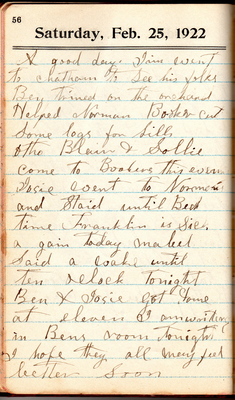 56
Saturday, Feb. 25, 1922
A good day. Jim went
to chatham to See his folks
Ben trimed on the orchard
Helped Norman Booker cut
Some logs for bills
Otho Blair & Sollie
come to Bookers this even
Josie went to Normens
and Staid until Bed
time Franklin is Sick
a gain today mabel
Said a wake until
ten oclock tonight
Ben & Josie got home
at eleven I am writing
in Bens room tonight
I hope they all may feel
better Soon